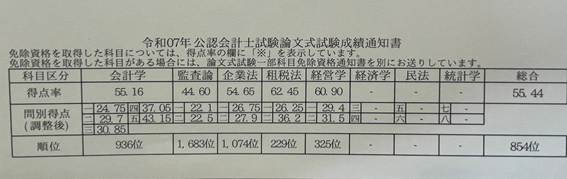 令和07年公認会計士試験論文式試験成績通知書
免除資格を取得した科目については、得点率の欄に「※」を表示しています。
免除資格を取得した科目がある場合には、論文式試験一部科目免除資格通知書を別にお送りしています。
科目区分 会計学 監査論 企業法 租税法 経営学 経済学 民法 統計学 総合
得点率 55.16 44.60 54.65 62.45 60.90 - - - 55.44
問別得点 一 24.75 四 37.05 一 22.1 一 26.75 一 26.25 一 29.4 三 - 五 - 七 -
(調整後) 二 29.7 五 43.15 二 22.5 二 27.9 二 36.2 二 31.5 四 - 六 - 八 -
三 30.85
順位 936位 1,683位 1,074位 229位 325位 - - - 854位